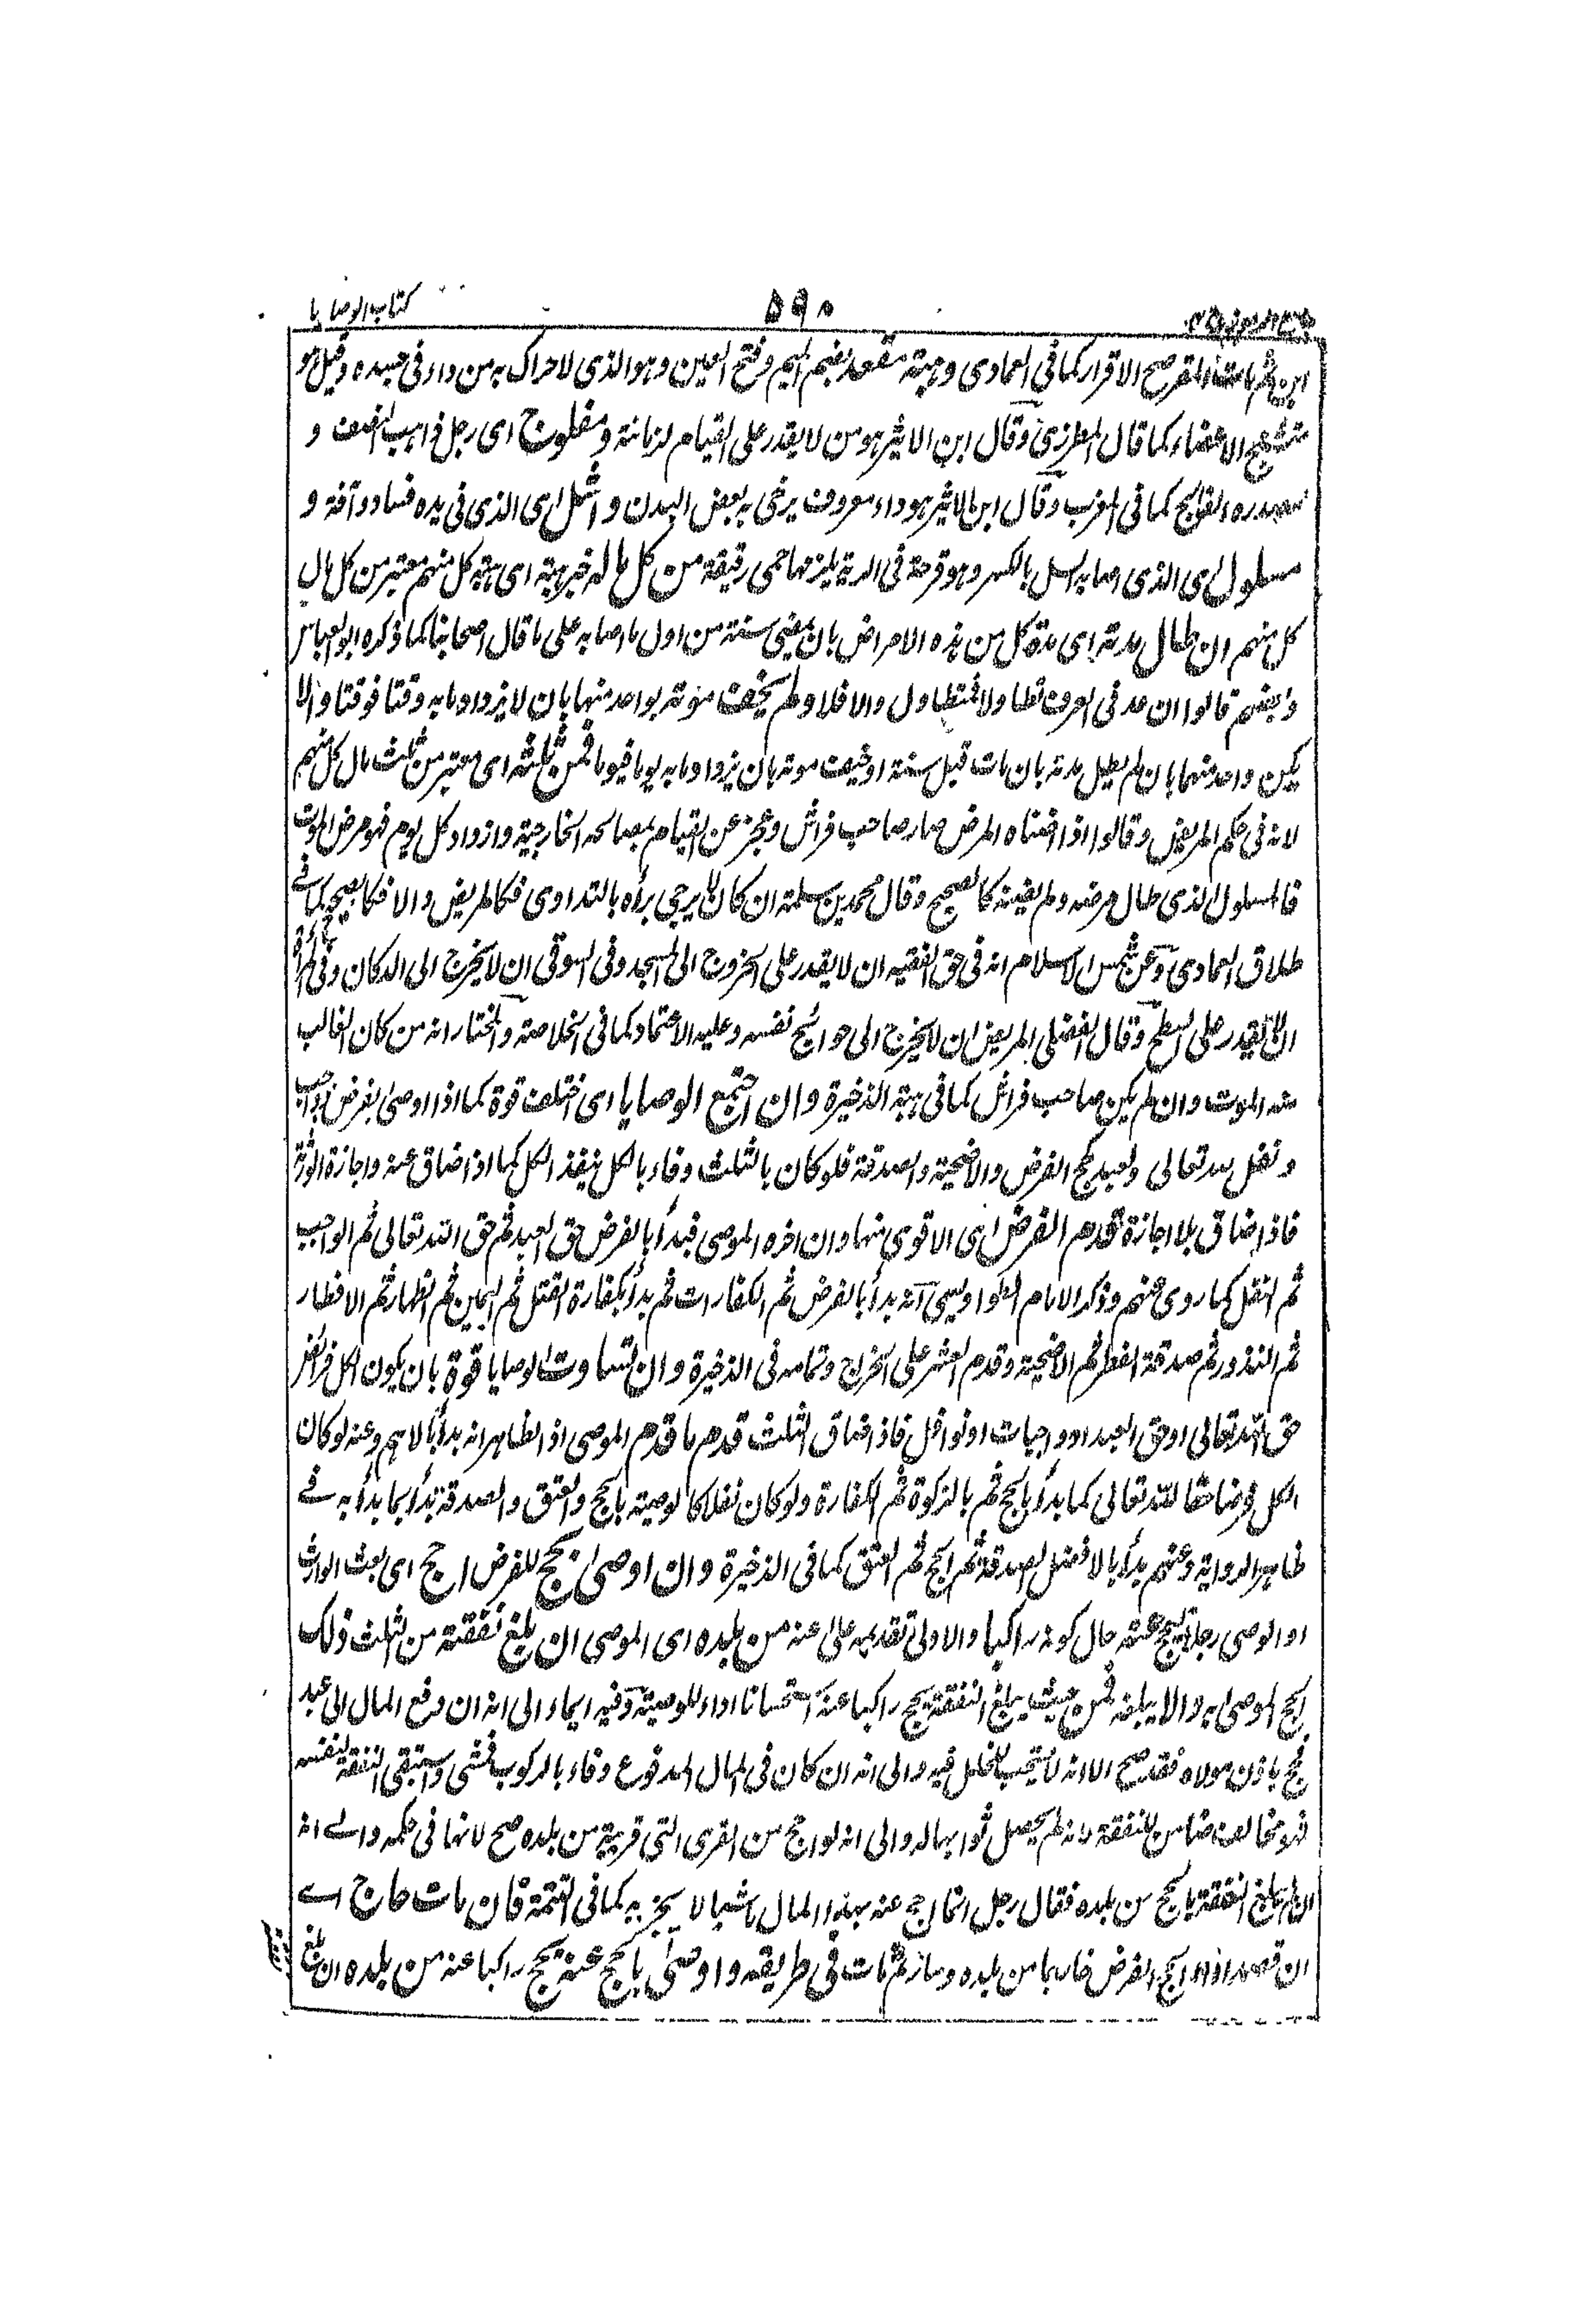 كتاب الوصايا
٥٩٠
ابن ثم مات المقر صح الاقرار كما فى العمادى وهبته مقعد بضم الميم وفتح العين وهو الذى لا حراك به من داء فى جسده وقيل هو
متشنج الاعضاء كما قال المطرزى وقال ابن الاثير هو من لا يقدر على القيام لزمانة ومفلوج اى رجل ذاهب النصف و
مصدره الفالج كما فى المغرب وقال ابن الاثير هو داء معروف يرخى به بعض البدن واشل اى الذى فى يده فساد وآفة و
مسلول اى الذى اصابه السل بالكسر وهو قرحة فى الرية يلزمها حمى رقيقة من كل ماله خبر هبته اى هبة كل منهم معتبر من كل مال
كل منهم ان طال مدته اى مدة كل من هذه الامراض بان يمضى سنة من اول ما اصابه على ما قال اصحابنا كما ذكره ابو العباس
وبعضهم قالوا ان عد فى العرف تطاولا فمتطاول والا فلا ولم يخف موته بواحد منها بان لا يزداد ما به وقتا فوقتا والا
يكن واحد منهما بان لم يطل مدته بان مات قبل سنة او خيف موته بان يزداد ما به يوما فيوما فمن ثلثه اى معتبر من ثلث مال كل منهم
لانه فى حكم المريض وقالوا اذا اضناه المرض صار صاحب فراش وعجز عن القيام بمصالحه الخارجية وازداد كل يوم فهو مرض الموت
فالمسلول الذى طال مرضه ولم يضنه كالصحيح وقال محمد بن سلمة ان كان لا يرجى برأه بالتداوى فكالمريض والا فكالصحيح كما فى
طلاق العمادى وعن شمس الاسلام انه فى حق الفقيه ان لا يقدر على الخروج الى المسجد وفى السوقى ان لا يخرج الى الدكان وفى المرأة
ان لا يقدر على السطح وقال الفضلى المريض ان لا يخرج الى حوائج نفسه وعليه الاعتماد كما فى الخلاصة والمختار انه من كان الغالب
منه الموت وان لم يكن صاحب فراش كما فى هبة الذخيرة وان اجتمع الوصايا اى اختلفت قوة كما اذا اوصى بفرض وواجب
ونفل لله تعالى ولعبد كحج الفرض والاضحية والصدقة فلو كان بالثلث وفاء بالكل ينفذ الكل كما اذا ضاق عنه واجازة الورثة
فاذا ضاق بلا اجازة قدم الفرض اى الاقوى منها وان اخره الموصى فبدأ بالفرض حق العبد ثم حق الله تعالى ثم الواجب
ثم النفل كما روى عنهم وذكر الامام الطواويسى انه بدأ بالفرض ثم الكفارات ثم بدأ بكفارة القتل ثم اليمين ثم الظهار ثم الافطار
ثم النذور ثم صدقة الفطر ثم الاضحية وقدم العشر على الخراج وتمامه فى الذخيرة وان تساوت الوصايا قوة بان يكون الكل فرائض
حق الله تعالى او حق العبد او واجبات او نوافل فاذا ضاق الثلث قدم ما قدم الموصى اذ الظاهر انه بدأ بالاهم وعنه لو كان
الكل فرضا حقا لله تعالى كما بدأ بالحج ثم بالزكوة ثم الكفارة ولو كان نفلا كالوصية بالحج والعتق والصدقة بدأ بما بدأ به فے
ظاهر الرواية وعنهم بدأ بالافضل الصدقة ثم الحج ثم العتق كما فى الذخيرة وان اوصى بحج للفرض احج اى بعث الوارث
او الوصى رجلا ليحج عنه حال كونه راكبا والاولى تقديمه على عنه من بلده اى الموصى ان بلغ نفقته من الثلث ذلك
الحج الموصى به والا يبلغه فمن حيث يبلغ النفقة يحج راكبا عنه استحسانا اداء للوصية وفيه ايماء الى انه ان دفع المال الى عبد
فحج باذن مولاه فقد صح الا انه لا يستحب للخلل فيه والى انه ان كان فى المال المدفوع وفاء بالركوب فمشى واستبقى النفقة لنفسه
فهو مخالف ضامن للنفقة لانه لم يحصل ثوابها له والى انه لو احج من القرى التى قريبة من بلده صح لانها فى حكمه والے انه
ان لم يبلغ النفقة بالحج من بلده فقال رجل انا احج عنه بهذا المال ماشيا لا يجزيه كما فى التتمة فان مات حاج اے
ان قصد اداء الحج الفرض خارجا من بلده وسار ثم مات فى طريقه واوصى بالحج عنه يحج راكبا عنه من بلده ان بلغ